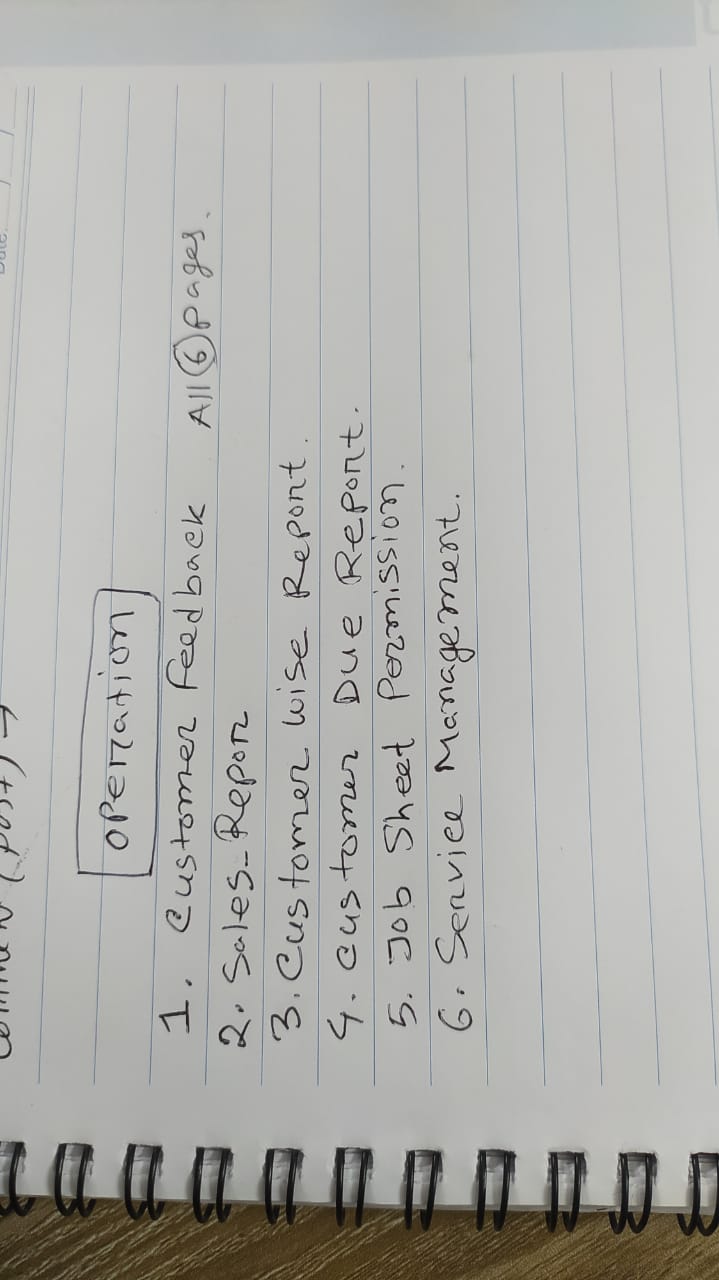 (post) →
Date: / /
operation
1. Customer feedback All 6 pages.
2. Sales-Repor
3. Customer wise Report.
4. Customer Due Report.
5. Job Sheet Permission.
6. Service Management.